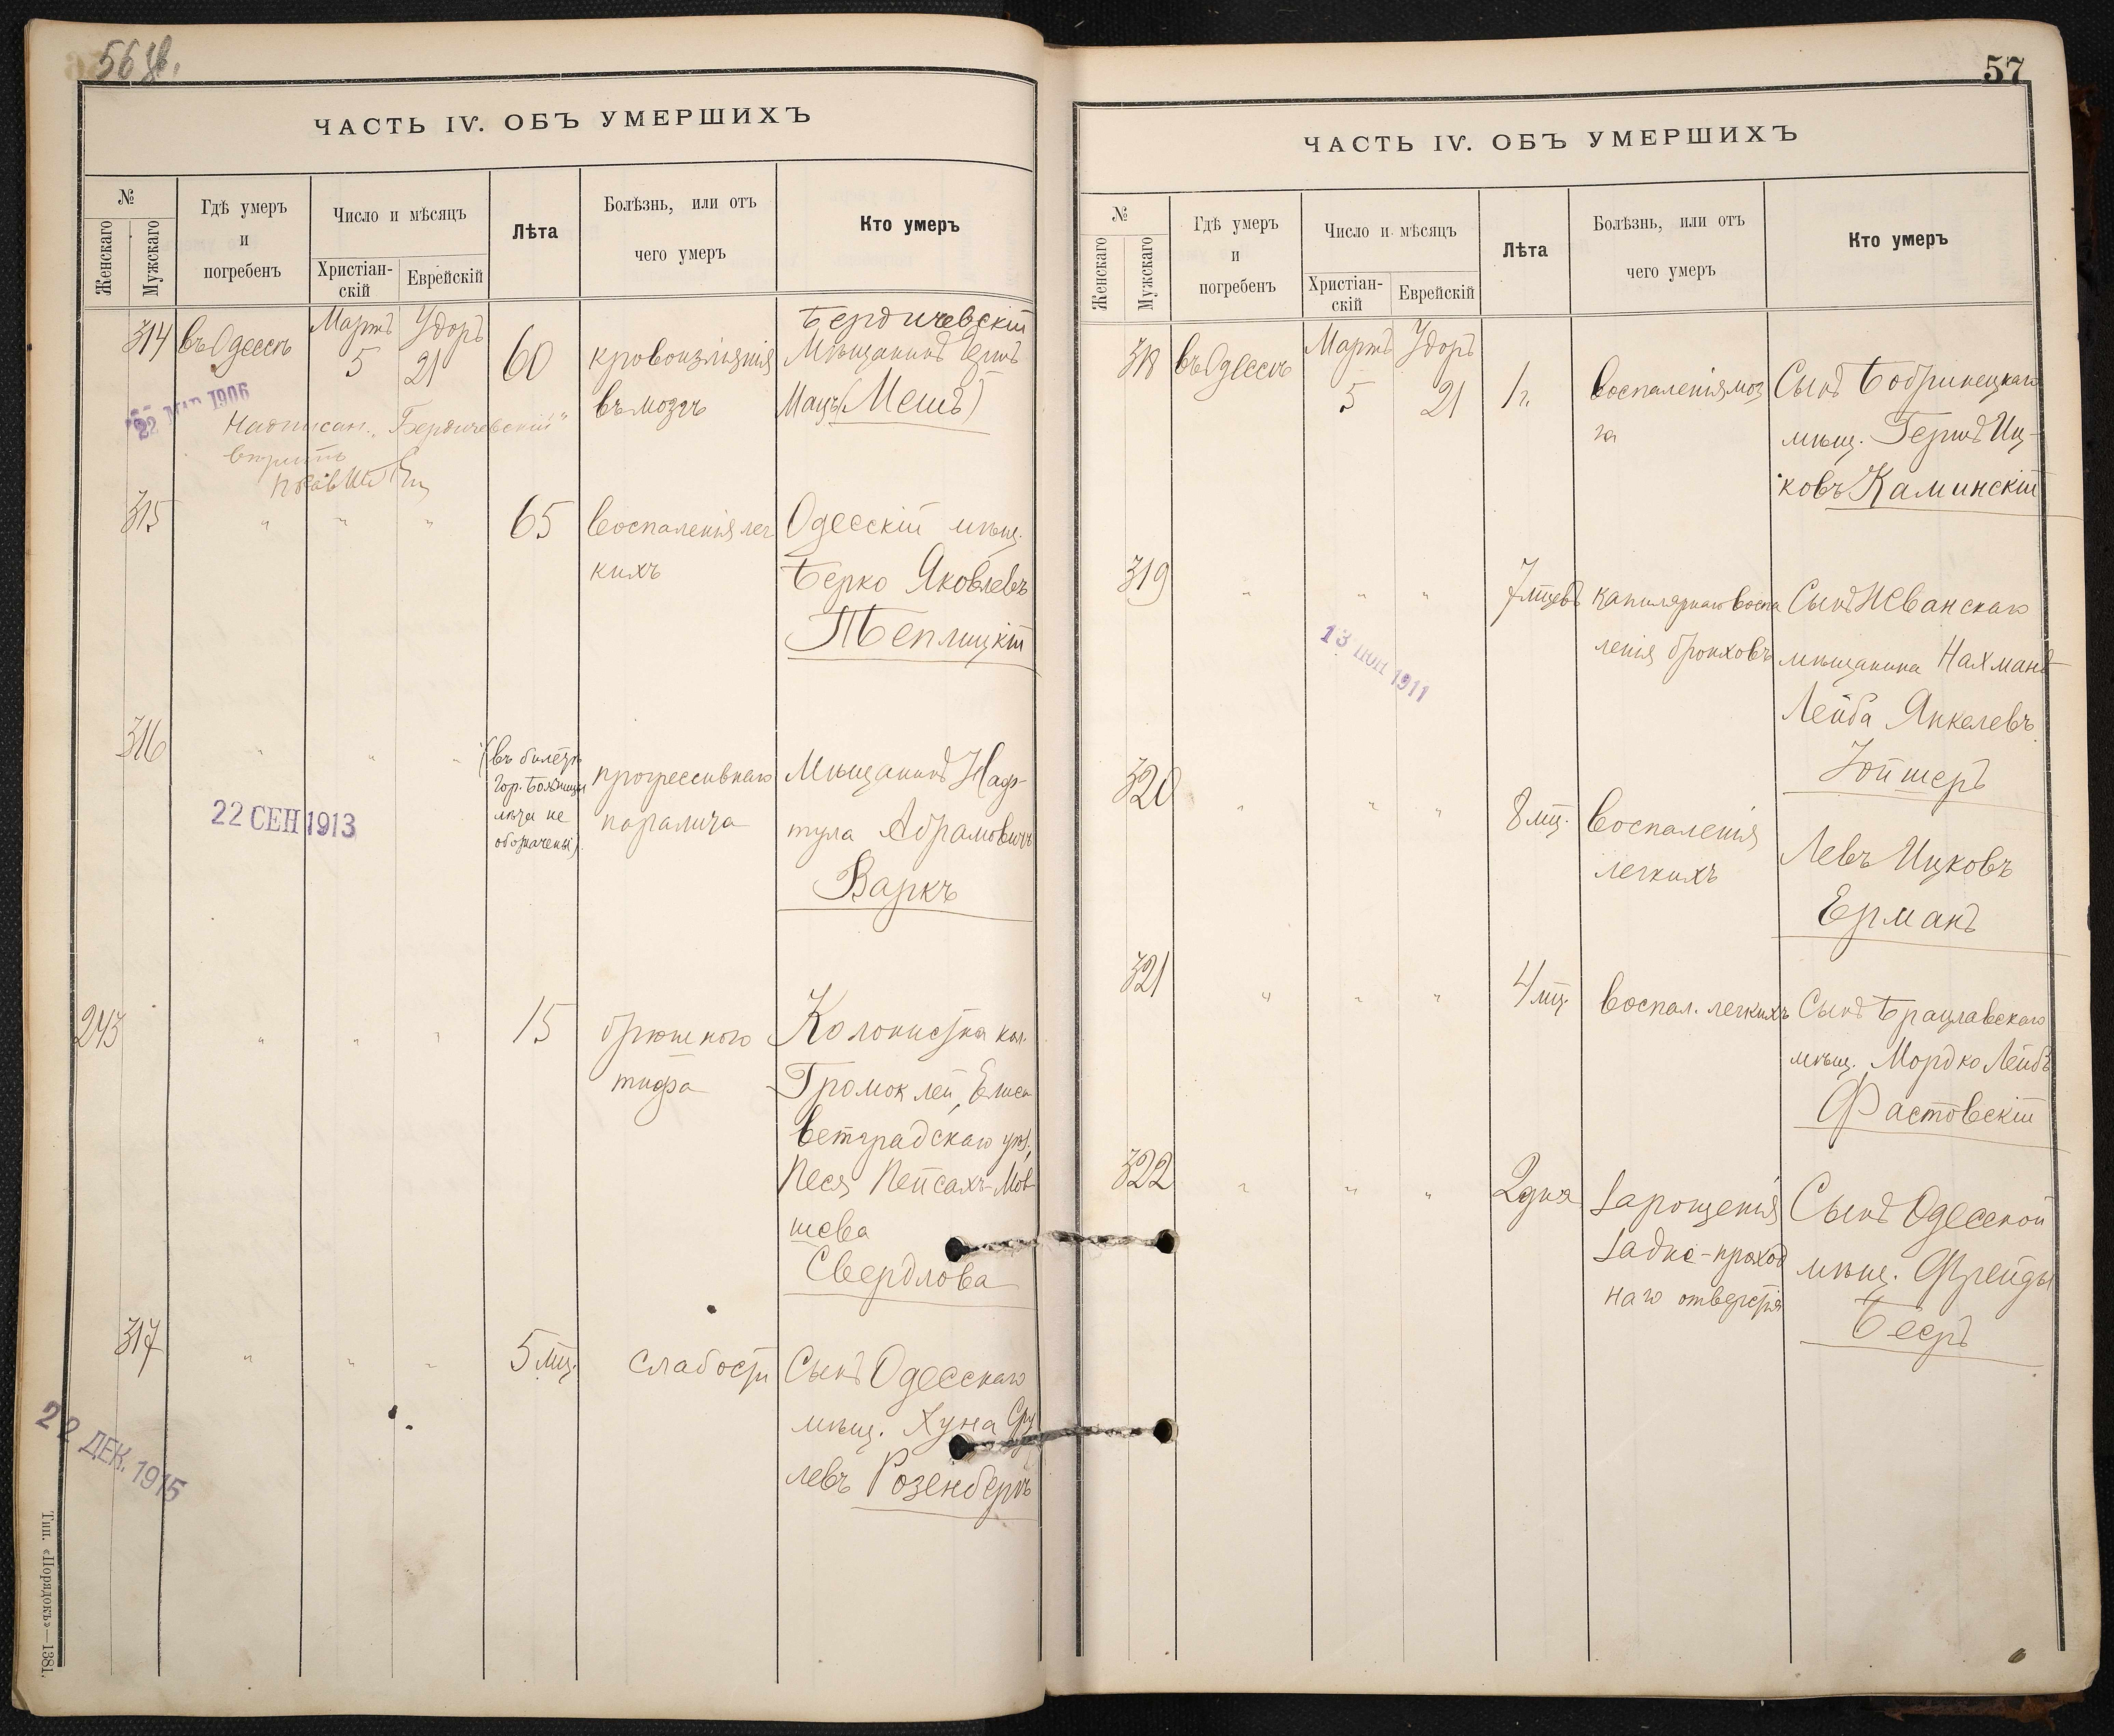 56 об.
ЧАСТЬ IV. ОБЪ УМЕРШИХЪ
№
Женскаго
Мужскаго
Гдѣ умеръ
и
погребенъ
Число и мѣсяцъ
Христіан-
скій
Еврейскій
Лѣта
Болѣзнь, или отъ
чего умеръ
Кто умеръ
314
въ Одессѣ
Мартъ
5
Удоръ
21
60
кровоизліянія
въ мозгъ
Бердичевскій
Мѣщанинъ
Мацъ (Мешъ)
22 МАР 1906
Надписан. „Бердичевскій"
вѣрить
315
"
"
"
65
Воспаленія лег
кихъ
Одесскій мѣщ.
Берко Яковлевъ
Теплицкій
316
"
"
"
(въ билетѣ
Гор. Больницы
лѣта не
обозначены).
прогрессивнаго
паралича
Мѣщанинъ Наф-
тула Абрамовичъ
Варкъ
22 СЕН 1913
243
"
"
"
15
брюшного
тифа
Колонистка кол.
Громоклей, Елиса
ветградскаго уѣз.,
Песя Пейсахъ-Мов
шева
Свердлова
317
"
"
"
5 мц.
Слабости
Сынъ Одесскаго
мѣщ. Хуна Сру
левъ Розенбергъ
22 ДЕК. 1915
Тип. «Порядокъ»—1381.
57
ЧАСТЬ IV. ОБЪ УМЕРШИХЪ
№
Женскаго
Мужскаго
Гдѣ умеръ
и
погребенъ
Число и мѣсяцъ
Христіан-
скій
Еврейскій
Лѣта
Болѣзнь, или отъ
чего умеръ
Кто умеръ
318
въ Одессѣ
Мартъ
5
Удоръ
21
1 г.
Воспаленія моз
га
Сынъ Бобринецкаго
мѣщ. Гершъ Иц-
ковъ Каминскій
319
"
"
"
7 мцевъ
капилярнаго воспа
ленія бронховъ
Сынъ Неванскаго
мѣщанина Нахманъ
Лейба Янкелевъ
Зойшеръ
13 ІЮН 1911
320
"
"
"
8 мц.
Воспаленія
легкихъ
Левъ Ицковъ
Ерманъ
321
"
"
"
4 мц.
воспал. легкихъ
Сынъ Брацлавскаго
мѣщ. Мордко Лейбъ
Фастовскій
322
"
"
"
2 дня
Зарощенія
Задне-проход
наго отверстія
Сынъ Одесской
мѣщ. Фрейды
Бееръ